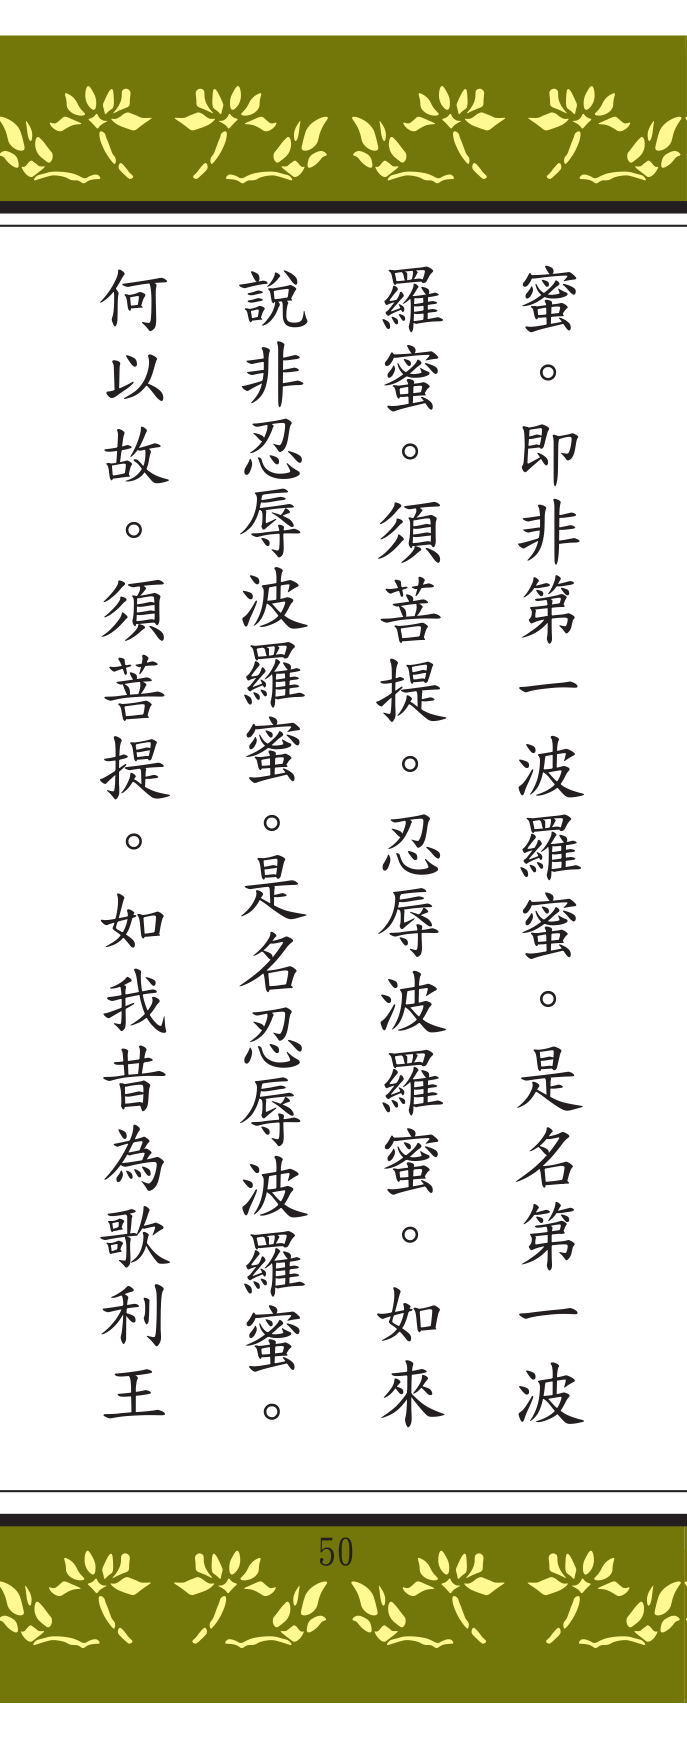 蜜。即非第一波羅蜜。是名第一波
羅蜜。須菩提。忍辱波羅蜜。如來
說非忍辱波羅蜜。是名忍辱波羅蜜。
何以故。須菩提。如我昔為歌利王
50